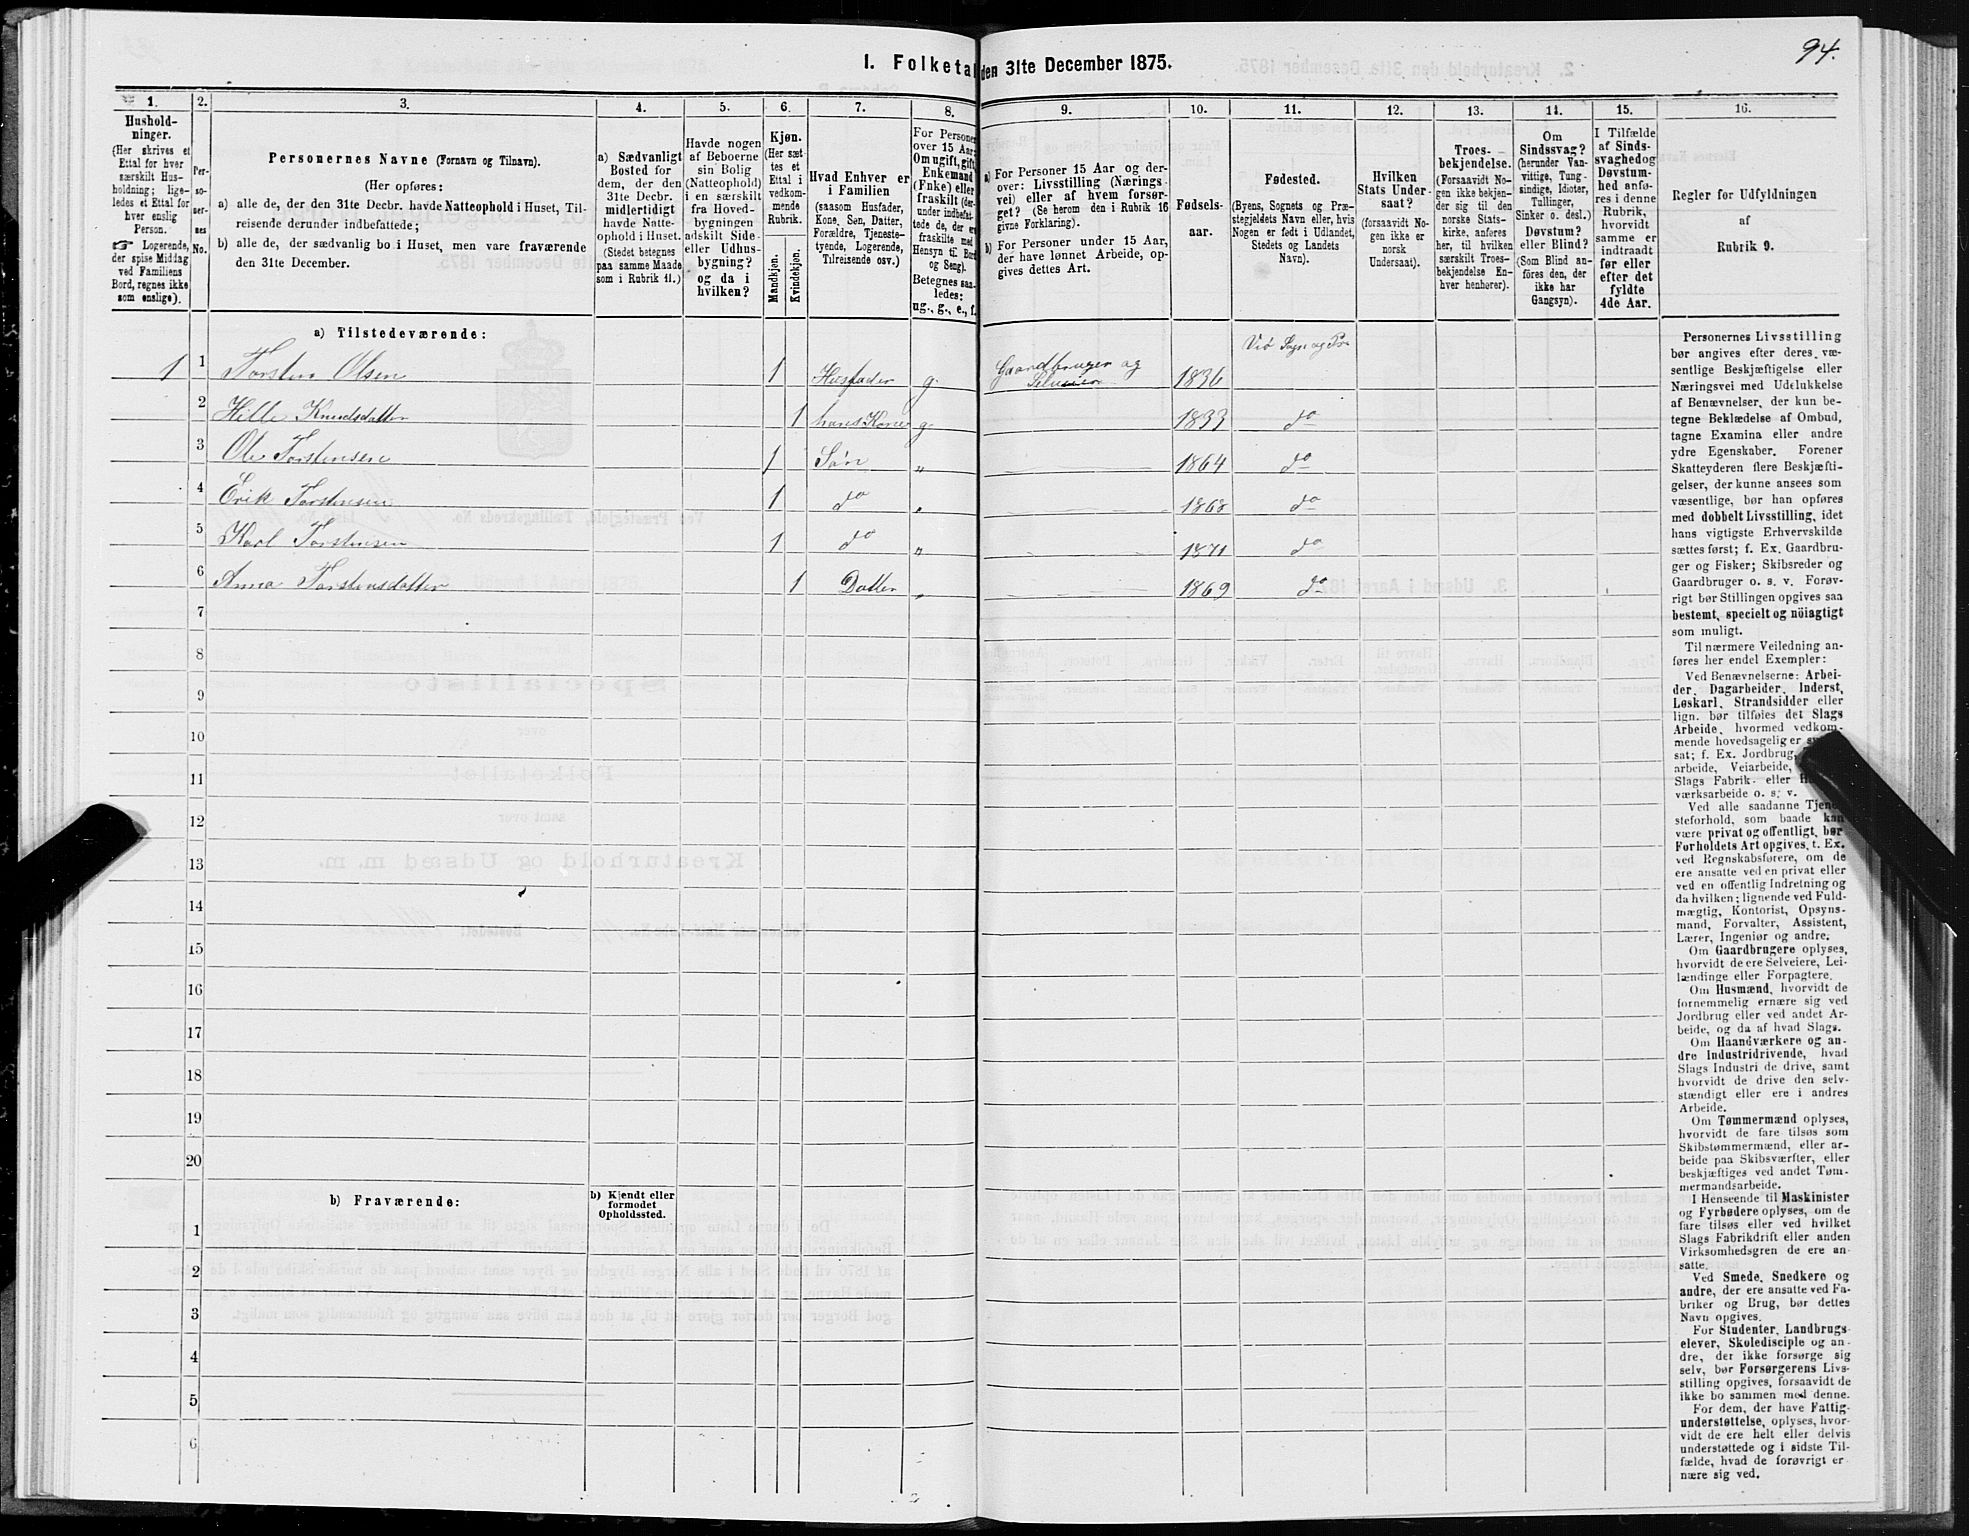 94.
I. Folketal den 31te December 1875.
1.
Hushold-
ninger.
(Her skrives et
Ettal for hver
særskilt Hus-
holdning; lige-
ledes et Ettal for
hver enslig
Person.
☞ Logerende,
der spise Middag
ved Familiens
Bord, regnes ikke
som enslige).
2.
Per-
so-
ner-
nes
No.
3.
Personernes Navne (Fornavn og Tilnavn).
(Her opføres:
a) alle de, der den 31te Decbr. havde Natteophold i Huset, Til-
reisende derunder indbefattede;
b) alle de, der sædvanlig bo i Huset, men vare fraværende
den 31te December.
4.
a) Sædvanligt
Bosted for
dem, der den
31te Decbr.
midlertidigt
havde Natte-
ophold i Huset.
(Stedet betegnes
paa samme Maade
som i Rubrik 11.)
5.
Havde nogen
af Beboerne
sin Bolig
(Natteophold)
i en særskilt
fra Hoved-
bygningen
adskilt Side-
eller Udhus-
bygning?
og da i
hvilken?
6.
Kjøn.
(Her sæt-
tes et
Ettal i
vedkom-
mende
Rubrik.
Mandkjøn.
Kvindekjøn.
7.
Hvad Enhver er
i Familien
(saasom Husfader,
Kone, Søn, Datter,
Forældre, Tjeneste-
tyende, Logerende,
Tilreisende osv.)
8.
For Personer
over 15 Aar:
Om ugift, gift,
Enkemand
(Enke) eller
fraskilt (der-
under indbefat-
tede de, der ere
fraskilte med
Hensyn til Bord
og Seng).
Betegnes saa-
ledes:
ug., g., e., f.
9.
a) For Personer 15 Aar og der-
over: Livsstilling (Nærings-
vei) eller af hvem forsør-
get? (Se herom den i Rubrik 16
givne Forklaring).
b) For Personer under 15 Aar,
der have lønnet Arbeide, op-
gives dettes Art.
10.
Fødsels-
aar.
11.
Fødested.
(Byens, Sognets og Præ-
stegjeldets Navn eller, hvis
Nogen er født i Udlandet,
Stedets og Landets
Navn).
12.
Hvilken
Stats Under-
saat?
(forsaavidt No-
gen ikke er
norsk
Undersaat).
13.
Troes-
bekjendelse.
(Forsaavidt No-
gen ikke bekjen-
der sig til den
norske Stats-
kirke, anføres
her, til hvilken
særskilt Troes-
bekjendelse En-
hver henhører).
14.
Om
Sindssvag?
(herunder Van-
vittige, Tung-
sindige, Idioter,
Tullinger,
Sinker o. desl.)
Døvstum?
eller Blind?
(Som Blind an-
føres den, der
ikke har
Gangsyn).
15.
I Tilfælde
af Sinds-
svaghed og
Døvstum-
hed anfø-
res i denne
Rubrik,
hvorvidt
samme er
indtraadt
før eller
efter det
fyldte
4de Aar.
16.
Regler for Udfyldningen
af
Rubrik 9.
a) Tilstedeværende:
1 1 Torsten Olsen 1 Husfader g. Gaardbruger og Selveier 1836 Vió Sogn og Pr
2 Hille Knudsdatter 1 hans Kone g. 1833 do
3 Ole Torstensen 1 Søn „ 1864 do
4 Erik Torstensen 1 do „ 1868 do
5 Karl Torstensen 1 do „ 1871 do
6 Anna Torstensdatter 1 Datter „ 1869 do
7
8
9
10
11
12
13
14
15
16
17
18
19
20
b) Fraværende:
b) Kjendt eller
formodet
Opholdssted.
1
2
3
4
5
6
Personernes Livsstilling
bør angives efter deres væ-
sentlige Beskjæftigelse eller
Næringsvei med Udelukkelse
af Benævnelser, der kun be-
tegne Beklædelse af Ombud,
tagne Examina eller andre
ydre Egenskaber. Forener
Skatteyderen flere Beskjæfti-
gelser, der kunne ansees som
væsentlige, bør han opføres
med dobbelt Livsstilling, idet
hans vigtigste Erhvervskilde
sættes først; f. Ex. Gaardbru-
ger og Fisker; Skibsreder og
Gaardbruger o. s. v. Forøv-
rigt bør Stillingen opgives saa
bestemt, specielt og nöiagtigt
som muligt.
Til nærmere Veiledning an-
føres her endel Exempler:
Ved Benævnelserne: Arbei-
der, Dagarbeider, Inderst,
Løskarl, Strandsidder eller
lign. bør tilføies det Slags
Arbeide, hvormed vedkom-
mende hovedsagelig er
sat; f. Ex. Jordbrug,
arbeide, Veiarbeide,
Slags Fabrik- eller
værksarbeide o. s. v.
Ved alle saadanne Tjene-
steforhold, som baade kan
være privat og offentligt, bør
Forholdets Art opgives, t. Ex.
ved Regnskabsførere, om de
ere ansatte ved en privat eller
ved en offentlig Indretning og
da hvilken; lignende ved Fuld-
mægtig, Kontorist, Opsyns-
mand, Forvalter, Assistent,
Lærer, Ingeniør og andre.
Om Gaardbrugere oplyses,
hvorvidt de ere Selveiere, Lei-
lændinge eller Forpagtere.
Om Husmænd, hvorvidt de
fornemmelig ernære sig ved
Jordbrug eller ved andet Ar-
beide, og da af hvad Slags.
Om Haandværkere og an-
dre Industridrivende, hvad
Slags Industri de drive, samt
hvorvidt de drive den selv-
stændigt eller ere i andres
Arbeide.
Om Tømmermænd oplyses,
hvorvidt de fare tilsøs som
Skibstømmermænd, eller ar-
beide paa Skibsværfter, eller
beskjæftiges ved andet Tøm-
mermandsarbeide.
I Henseende til Maskinister
og Fyrbødere oplyses, om de
fare tilsøs eller ved hvilket
Slags Fabrikdrift eller anden
Virksomhedsgren de ere an-
satte.
Ved Smede, Snedkere og
andre, der ere ansatte ved Fa-
briker og Brug, bør dettes
Navn opgives.
For Studenter, Landbrugs-
elever, Skoledisciple og an-
dre, der ikke forsørge sig
selv, bør Forsørgerens Livs-
stilling opgives, forsaavidt de
ikke bo sammen med denne.
For dem, der have Fattig-
understøttelse, oplyses, hvor-
vidt de ere helt eller delvis
understøttede og i sidste Til-
fælde, hvad de forøvrigt er-
nære sig ved.